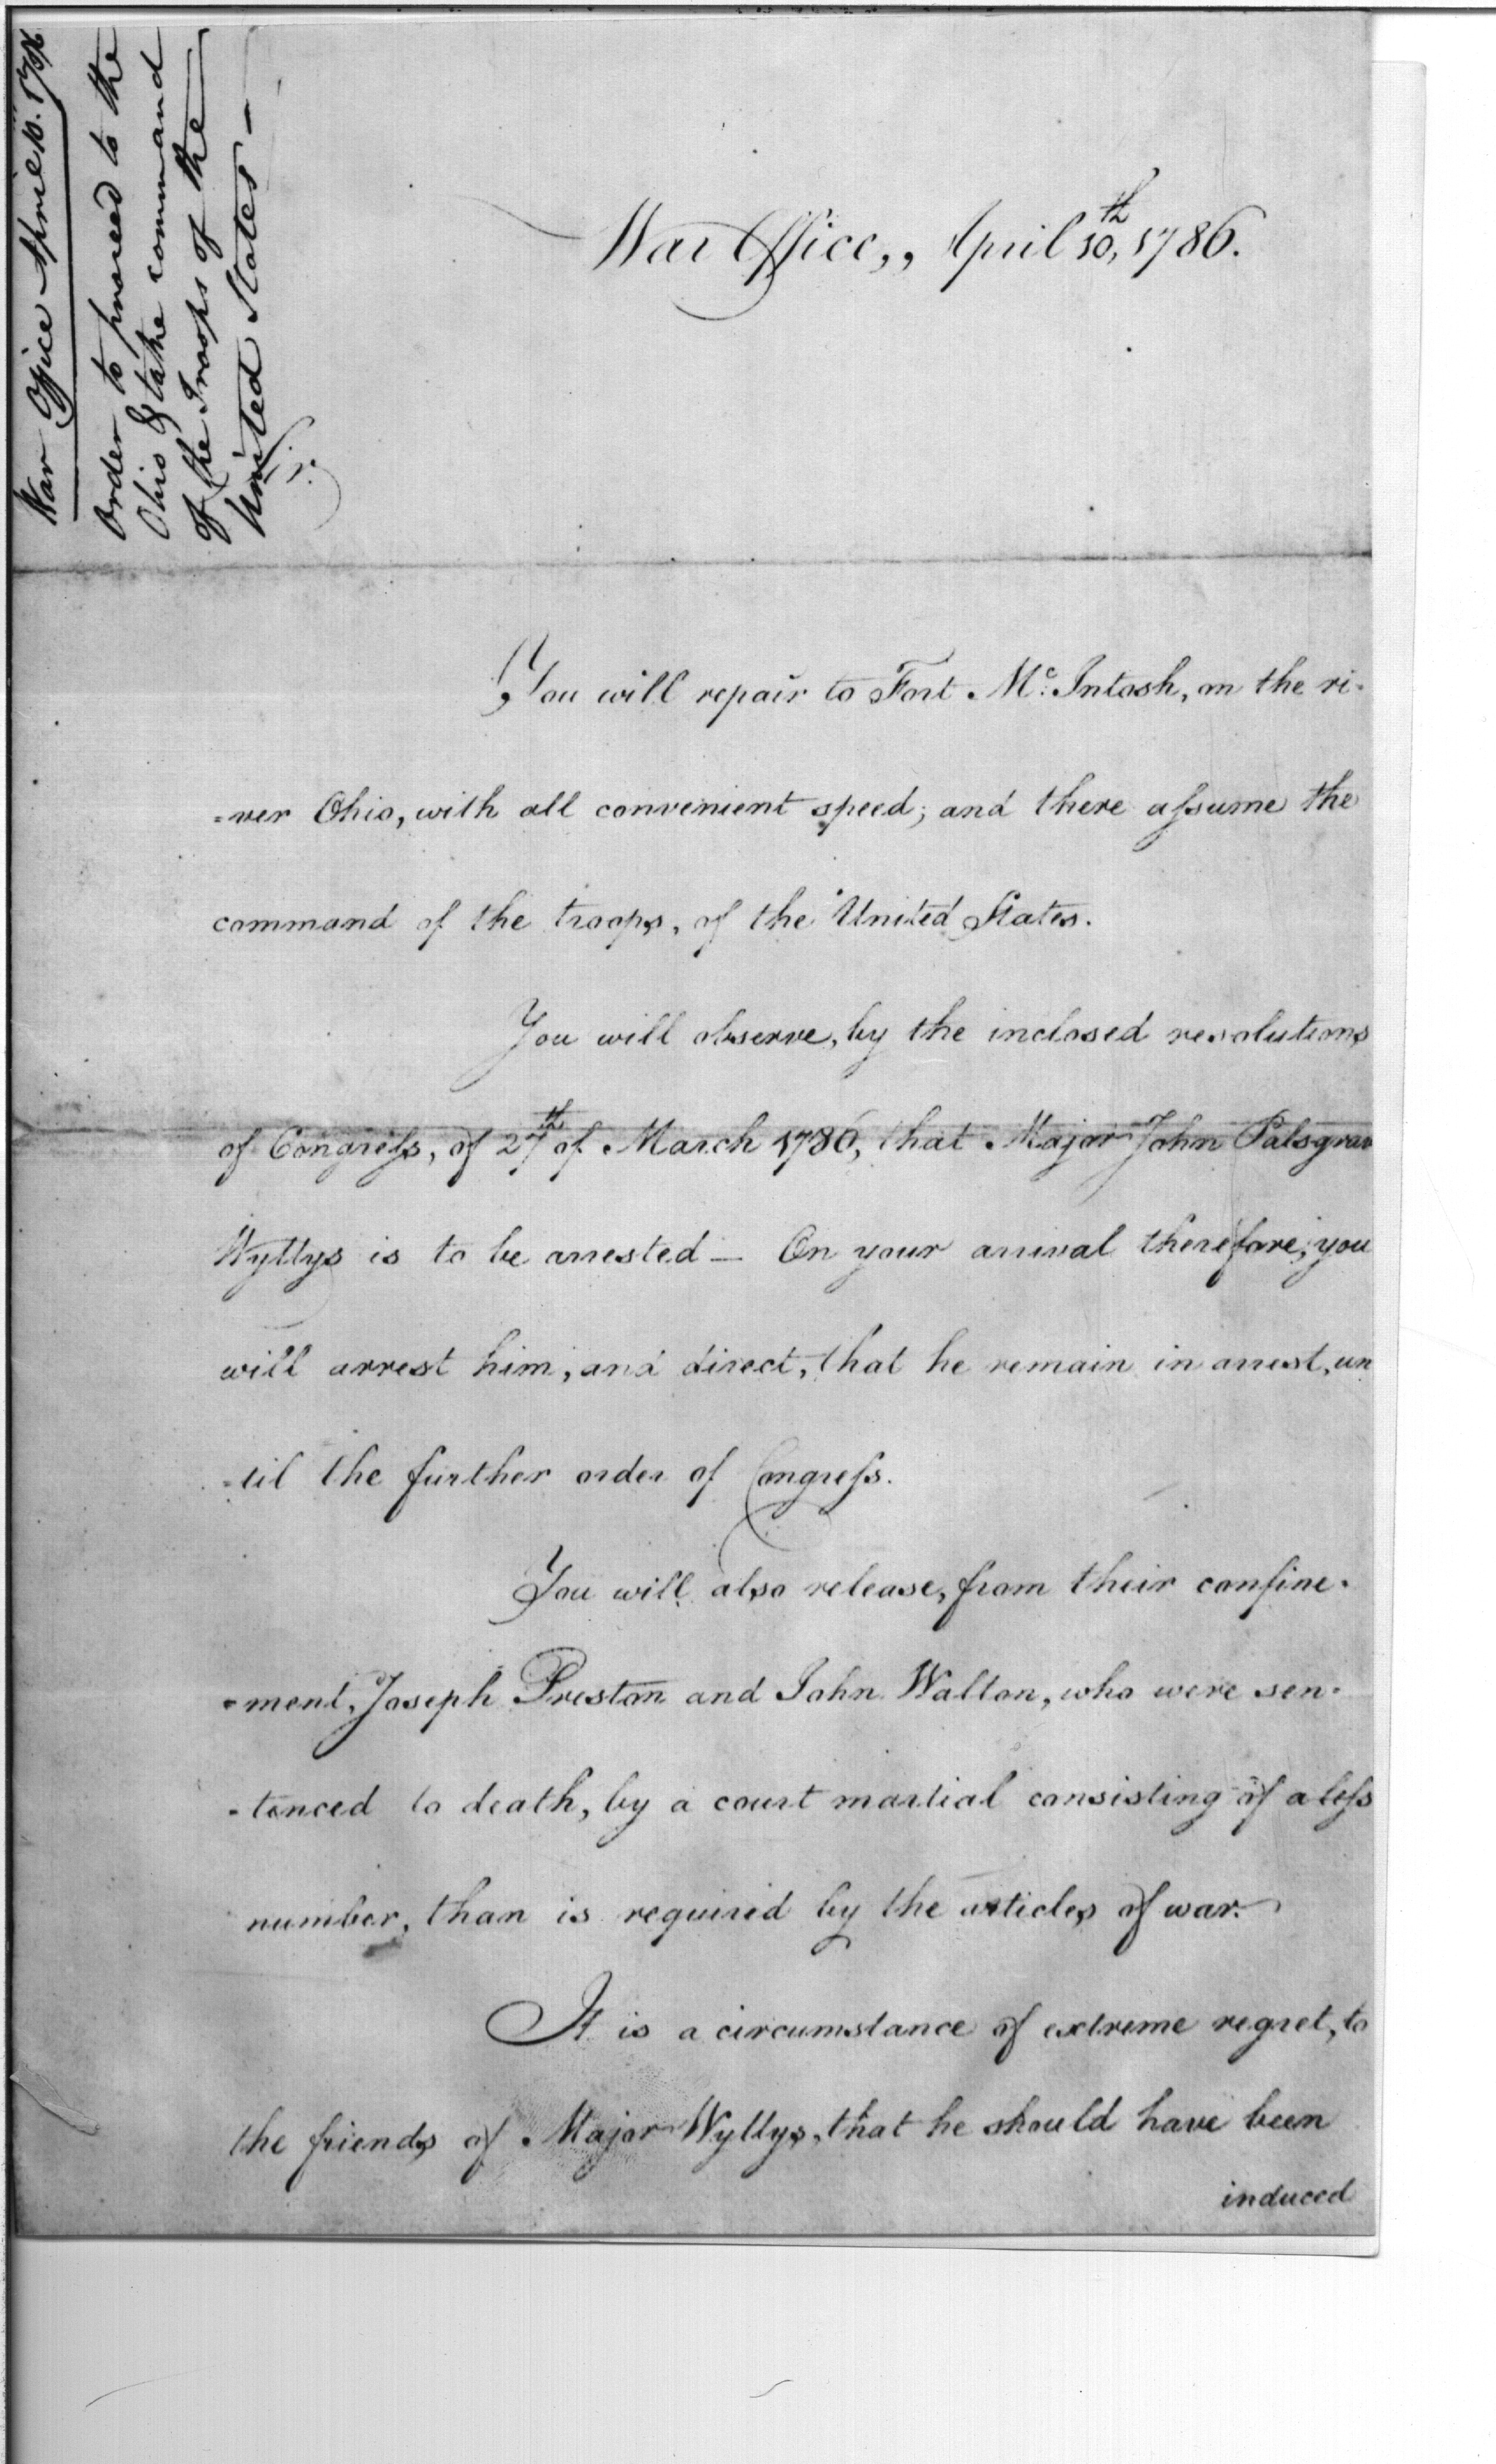 War Office April 10. 1786
Order to proceed to the
Ohio & take command
of the Troops of the
United States –
War Office,, April 10,th 1786.
You will repair to Fort Mc: Intosh, on the ri-
=ver Ohio, with all convenient speed; and there aſsume the
command of the troops, of the United States.
You will observe, by the inclosed resolutions
of Congreſs, of 27th of March 1786, that Major John Palsgrav
Wyllys is to be arrested – On your arrival therefore, you
will arrest him, and direct, that he remain in arrest, un
=til the further order of Congreſs.
You will also release, from their confine-
=ment, Joseph Preston and John Walton, who were sen-
=tenced to death, by a court martial consisting of a leſs
number, than is required by the articles of war.
It is a circumstance of extreme regret, to
the friends of Major Wyllys, that he should have been
induced